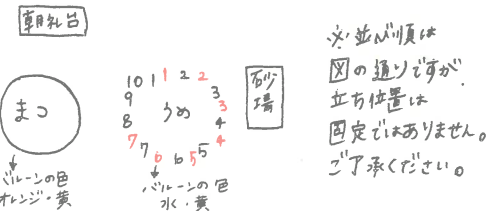 朝礼台
まつ
バルーンの色
オレンジ・黄
10 1 1 2 2
9 3
うめ 3
8 4
7 4
7 6 6 5 5
バルーンの色
水・黄
砂場
※並び順は
図の通りですが、
立ち位置は
固定ではありません。
ご了承ください。